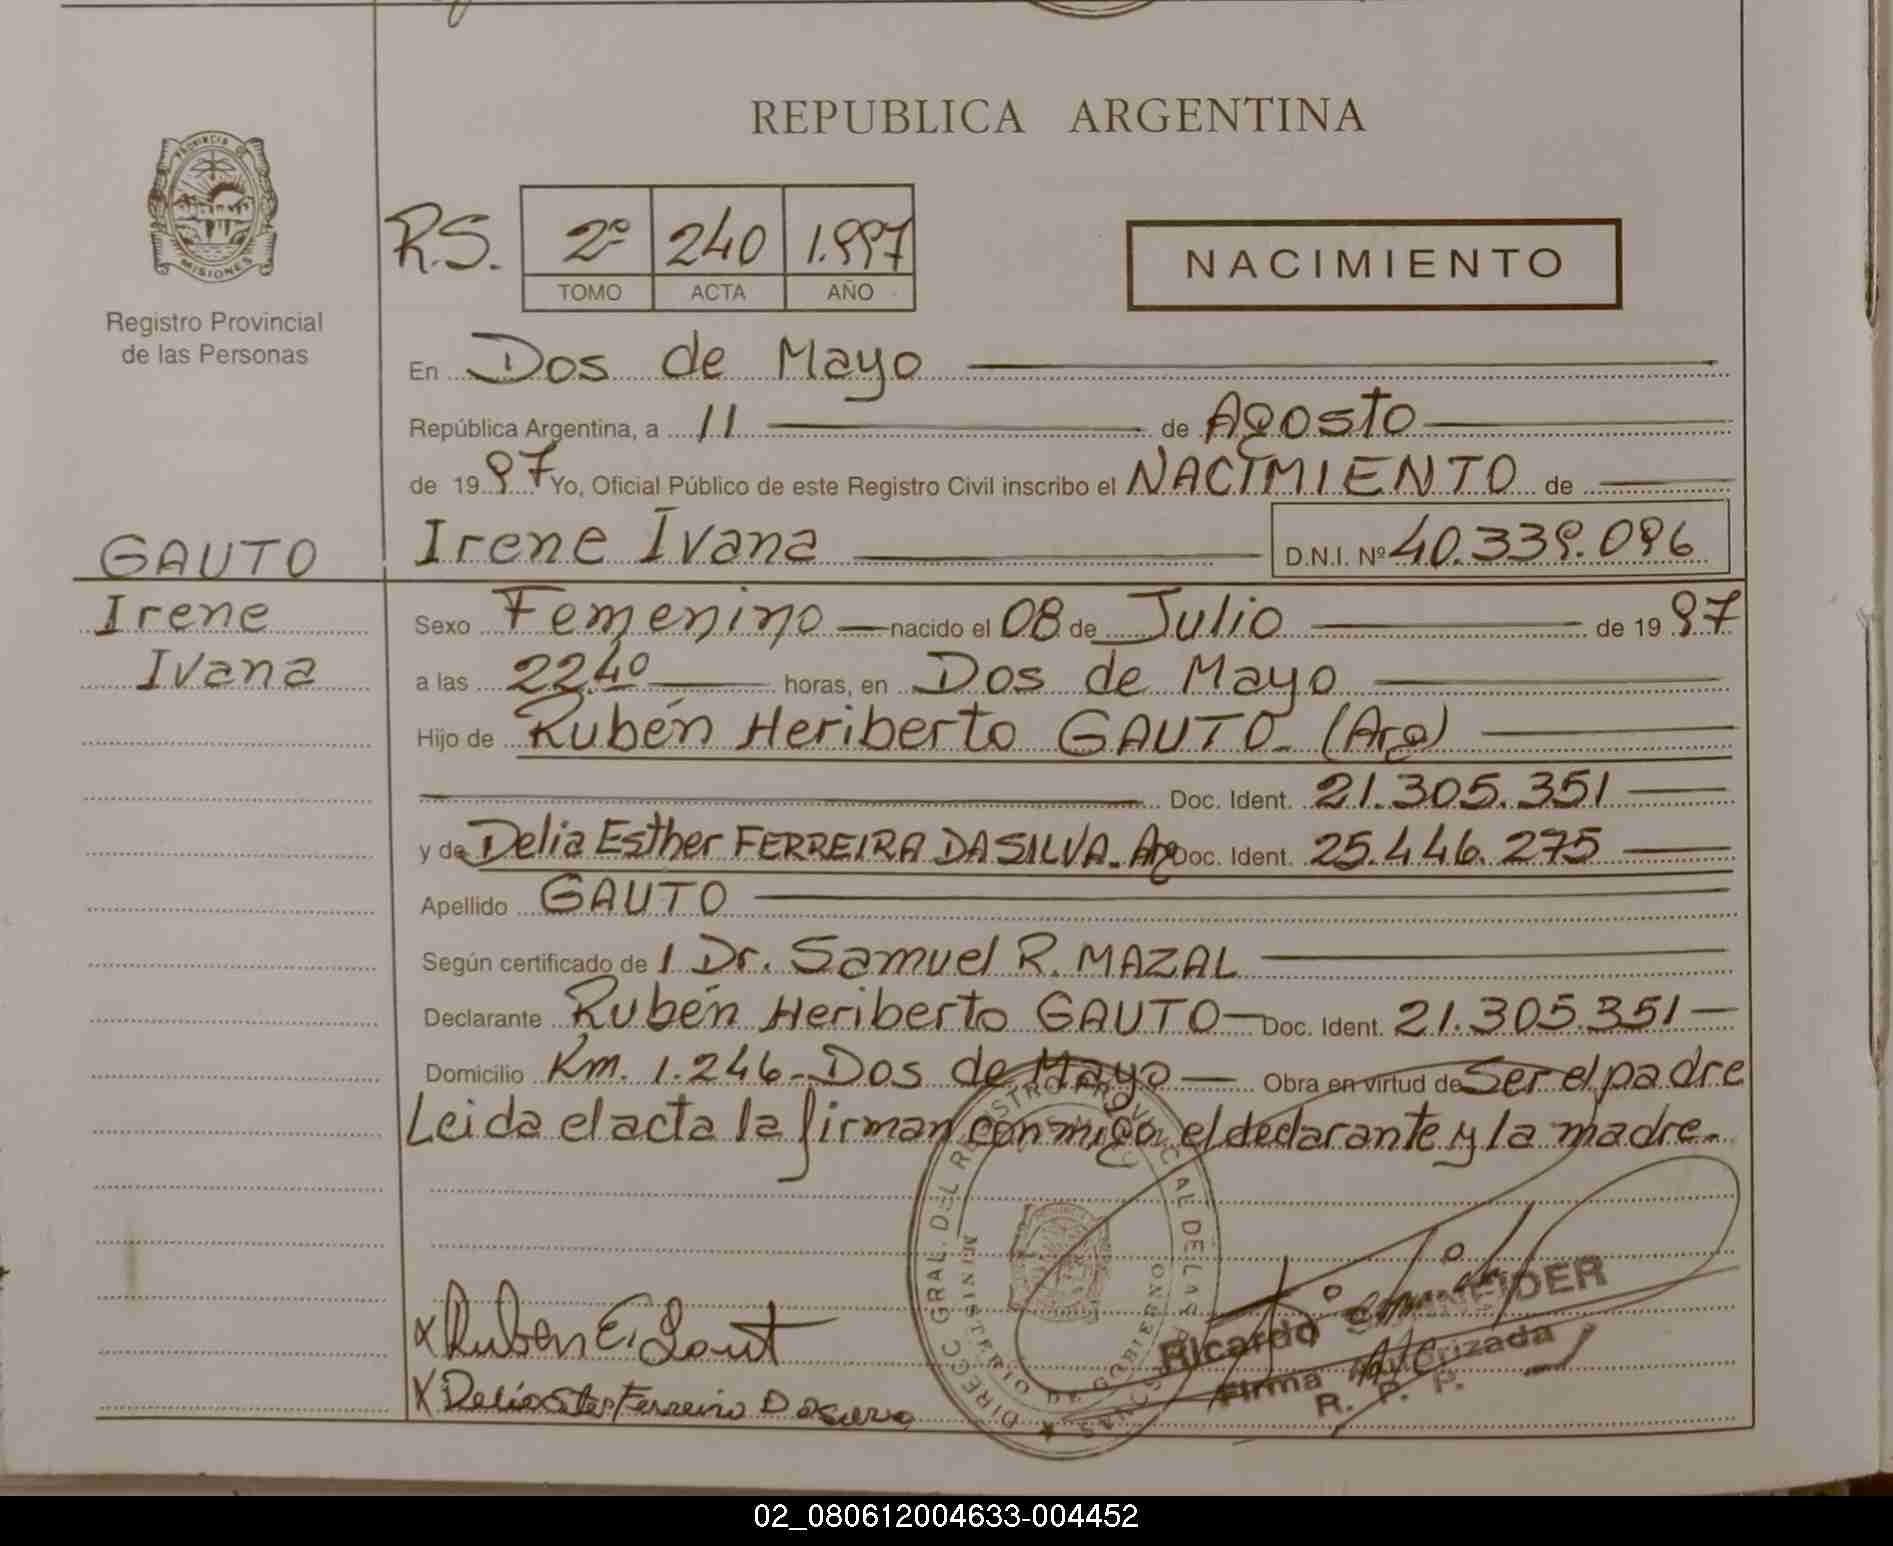 REPUBLICA ARGENTINA
PROVINCIA DE
MISIONES
Registro Provincial
de las Personas
R.S.
2º 240 1.997
TOMO ACTA AÑO
NACIMIENTO
En Dos de Mayo
República Argentina, a 11 de Agosto
de 19 97 Yo, Oficial Público de este Registro Civil inscribo el NACIMIENTO de
GAUTO
Irene
Ivana
Irene Ivana D.N.I. Nº 40.339.096
Sexo Femenino nacido el 08 de Julio de 19 97
a las 22.40 horas, en Dos de Mayo
Hijo de Rubén Heriberto GAUTO- (Arg)
Doc. Ident. 21.305.351
y de Delia Esther FERREIRA DA SILVA- Arg Doc. Ident. 25.446.275
Apellido GAUTO
Según certificado de 1 Dr. Samuel R. MAZAL
Declarante Rubén Heriberto GAUTO Doc. Ident. 21.305.351
Domicilio Km. 1.246- Dos de Mayo Obra en virtud de Ser el padre
Leida el acta la firman conmigo el declarante y la madre.
DIRECC GRAL. DEL REGISTRO PROVINCIAL DE LAS PERSONAS
MINISTERIO DE GOBIERNO
X Ruben E. Gout
X Delia Ferreira Dasilva
Ricardo SCHNEIDER
Firma Autorizada
R. P. P.
02_080612004633-004452